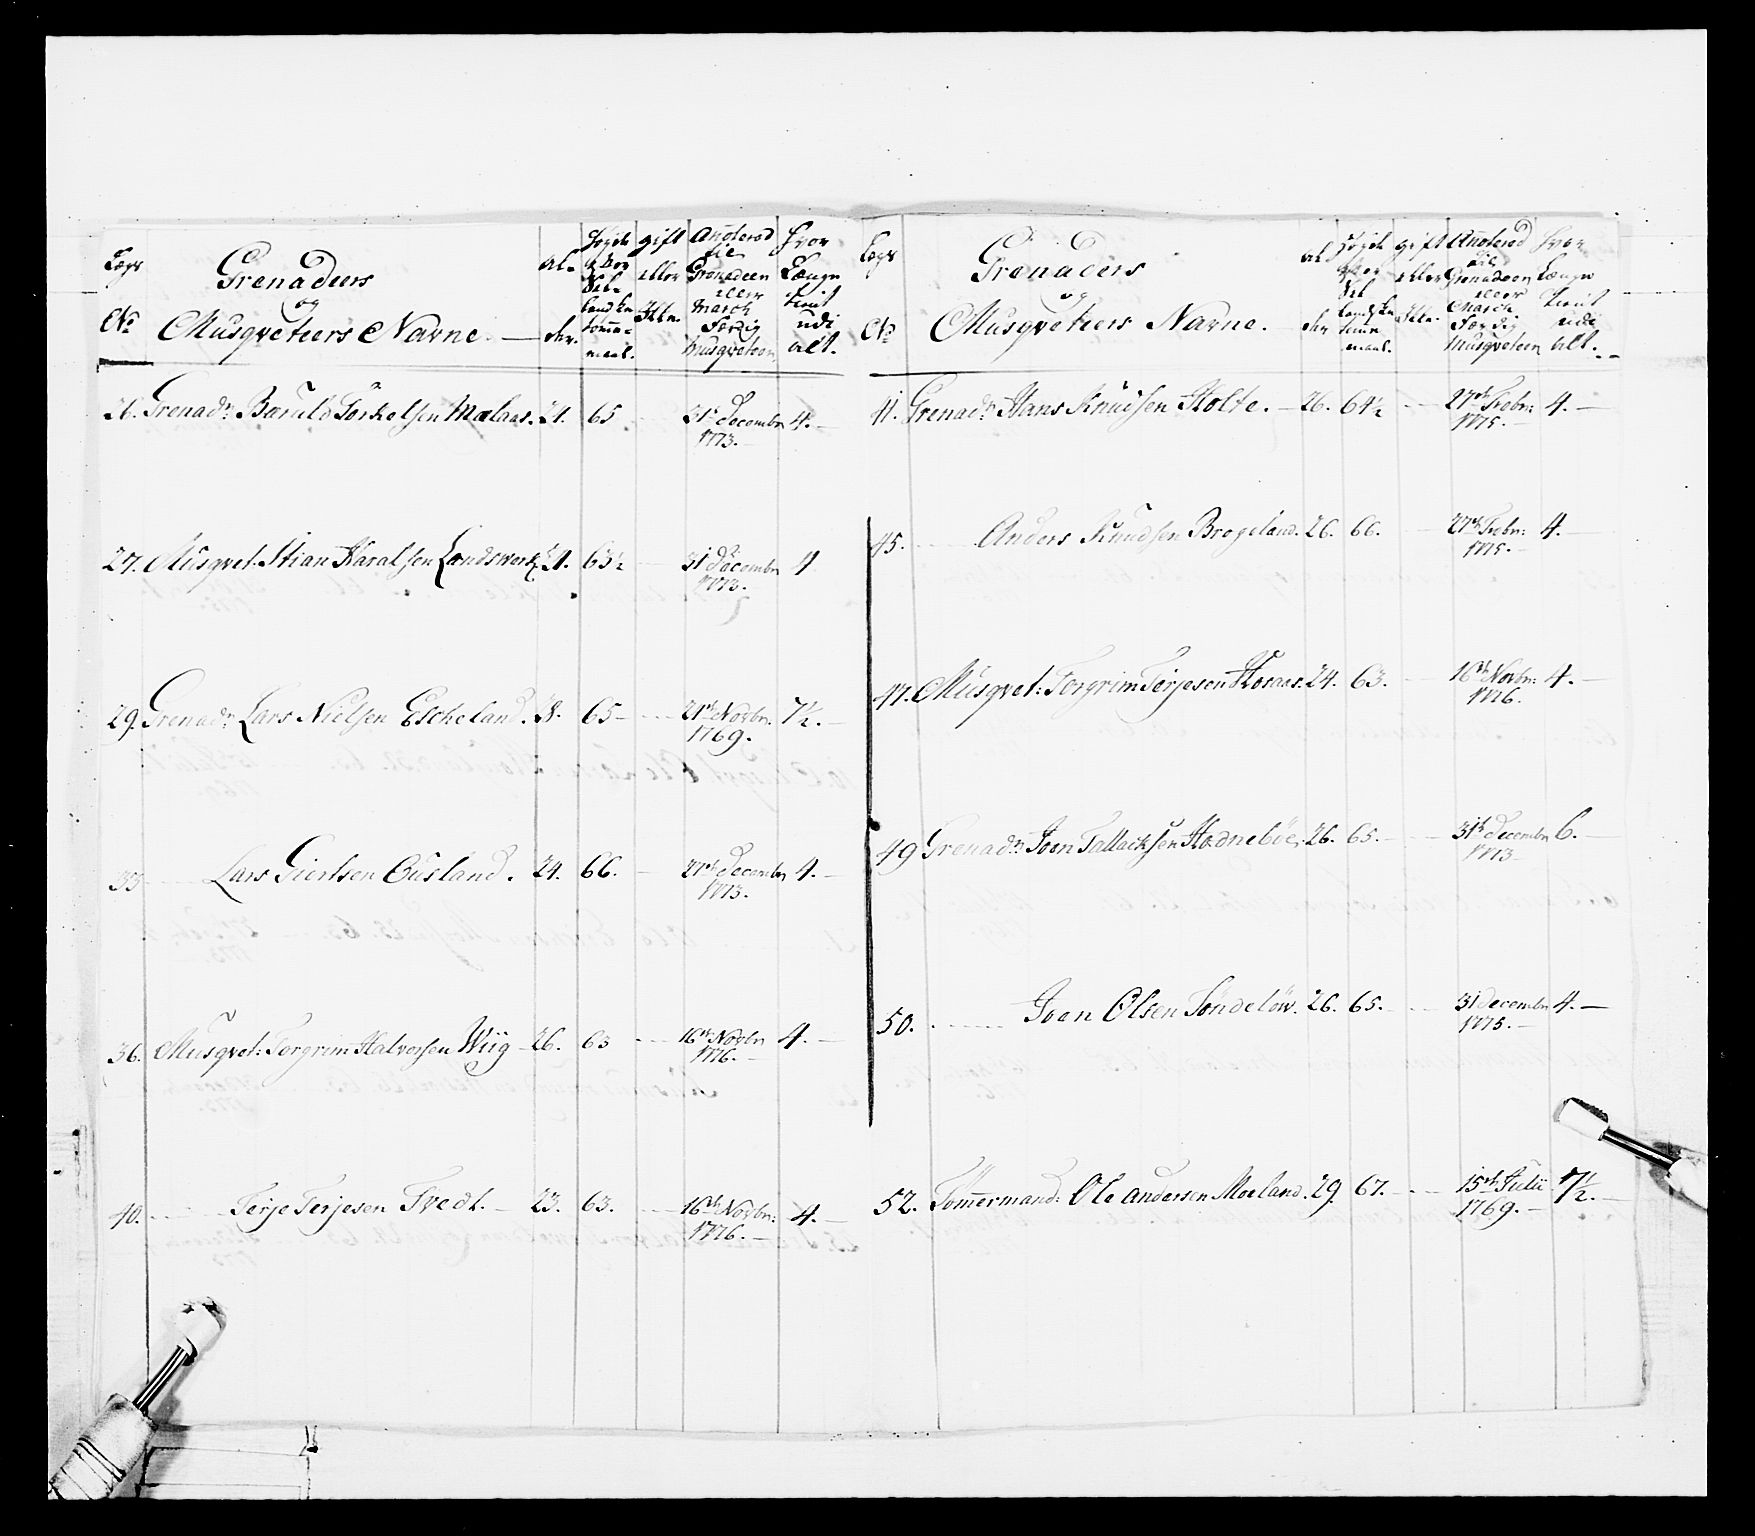 Lægs No
Grenadeers og Musqveteers Navne.
Al- der.
gift eller Ikke.
Antagen til Grenadeer eller March Færdig Musqveteer
Hvor Længe tient udi alt.
26. Grenadr Baruld Torkelsen Mælaas. 24. 65 31te Decembr 1773. 4.
27. Musqvet. Stian Haralsen Landswerk 24. 63½ 31 Decembr 1773. 4
29. Grenadr Lars Nielsen Escheland. 28. 65 21de Novbr. 1769. 7½.
33 Lars Giertsen Ousland. 24. 66. 27de Decembr 1773. 4.
36. Musqvet: Torgrim Halvorsen Wiig 26. 63 16de Novbr 1776. 4.
40. Terje Terjesen Tvedt. 23. 63. 16de Novbr: 1776. 4.
Lægs No
Grenadeers og Musqveteers Navne.
Al der
gift eller Ikke.
Antagen til Grenadeer eller March Færdig Musqveteer
Hvor Længe tient udi alt.
41. Grenadr Hans Knudsen Holte. 26. 64½ 27de Febr: 1775. 4.
45. Anders Knudsen Brogeland. 26. 66. 27de Febr: 1775. 4.
47. Musqvet: Torgrim Terjesen Horaas. 24. 63. 16de Novbr: 1776. 4.
49 Grenadr Joen Tallacksen Hodneböe. 26. 65. 31te Decembr 1773 6.
50. Joen Olsen Söndelöw. 26. 65. 31 Decembr 1775. 4.
52. Tömmermand: Ole Andersen Moeland. 29 67. 15de Julii 1769. 7½.